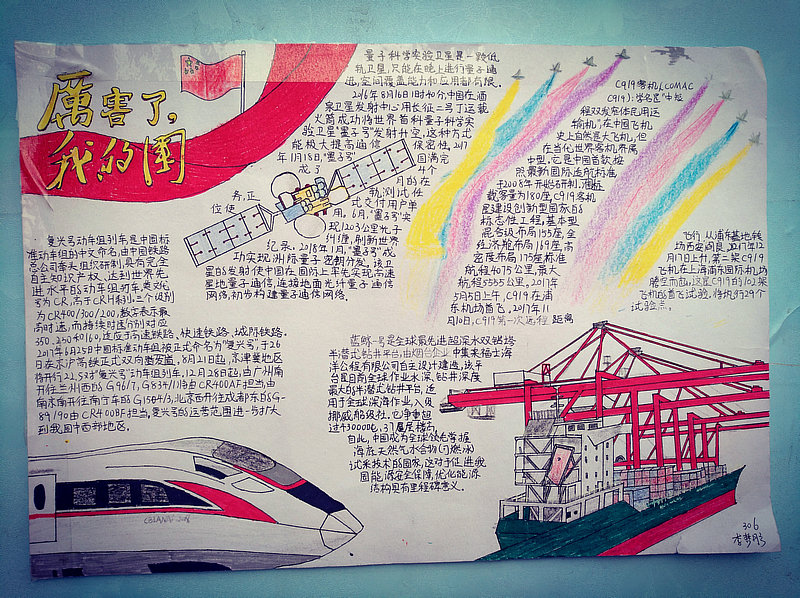 厲害了,
我的國
复兴号动车组列车,是中国标
准动车组的中文命名,由中国铁路
总公司牵头组织研制,具有完全
自主知识产权,达到世界先
进水平的动车组列车,英文代
号为CR,高于CRH系列。三个级别
为CR400/300/200,数字表示最
高时速,而持续时速分别对应
350,250和160,适应于高速铁路、快速铁路、城际铁路。
2017年6月25日中国标准动车组被正式命名为"复兴号",于26
日在京沪高铁正式双向首发。8月21日起,京津冀地区
将开行22.5对"复兴号"动车组列车,12月28日起,由广州南
开往兰州西的G96/7,G834/1)将由CR400AF担当,由
南京南开往南宁车的G1504/3,北京西开往成都东的G-
89/90由CR400BF担当,复兴号的运营范围进一步扩大
到我国中西部地区。
量子科学实验卫星是一颗低
轨卫星,只能在晚上进行量子通
讯,空间覆盖能力和应用都有限。
2016年8月16日1时40分,中国在酒
泉卫星发射中心用长征二号丁运载
火箭成功将世界首颗量子科学实
验卫星"墨子号"发射升空,这种方式
能极大提高通信保密性。2017
年1月18日,"墨子号"圆满完
成了4个
月的在
轨测试任
务,正式交付用户单
位使用。6月,"墨子号"实
现1203公里光子
纠缠,刷新世界
纪录。2018年1月,"墨子号"成
功实现洲际量子密钥分发。该卫
星的发射使中国在国际上率先实现高速
星地量子通信,连接地面光纤量子通信
网络,初步构建量子通信网络。
C919客机(COMAC
C919),学名是"中短
程双发窄体民用运
输机",在中国飞机
史上自然是大飞机,但
在当代世界客机界属
中型。它是中国首款按
照最新国际适航标准,
于2008年开始研制,准载
载客量为180座,C919客机
是建设创新型国家的
标志性工程,基本型
混合级布局155座,全
经济舱布局169座,高
密度布局175座标准
航程4075公里,最大
航程5555公里。2017年
5月5日上午,C919在浦
东机场首飞,2017年11
月10日,C919第一次远程距离
飞行,从浦东基地转
场西安阎良,2017年12
月17日上升,第二架C919
飞机在上海浦东国际机场
腾空而起,这是C919的102架
飞机的首飞试验,将执飞29个
试验点。
蓝鲸一号是全球最先进超深水双钻塔
半潜式钻井平台,由烟台企业中集来福士海
洋工程有限公司自主设计建造,该平
台是目前全球作业水深、钻井深度
最大的半潜式钻井平台,适
用于全球深海作业,入级
挪威船级社。它净重超
过43000吨,37层层楼高。
自此,中国成为全球领先掌握
海底天然气水合物(可燃冰)
试采技术的国家,这对于促进我
国能源安全保障,优化能源
结构具有里程碑意义。
306